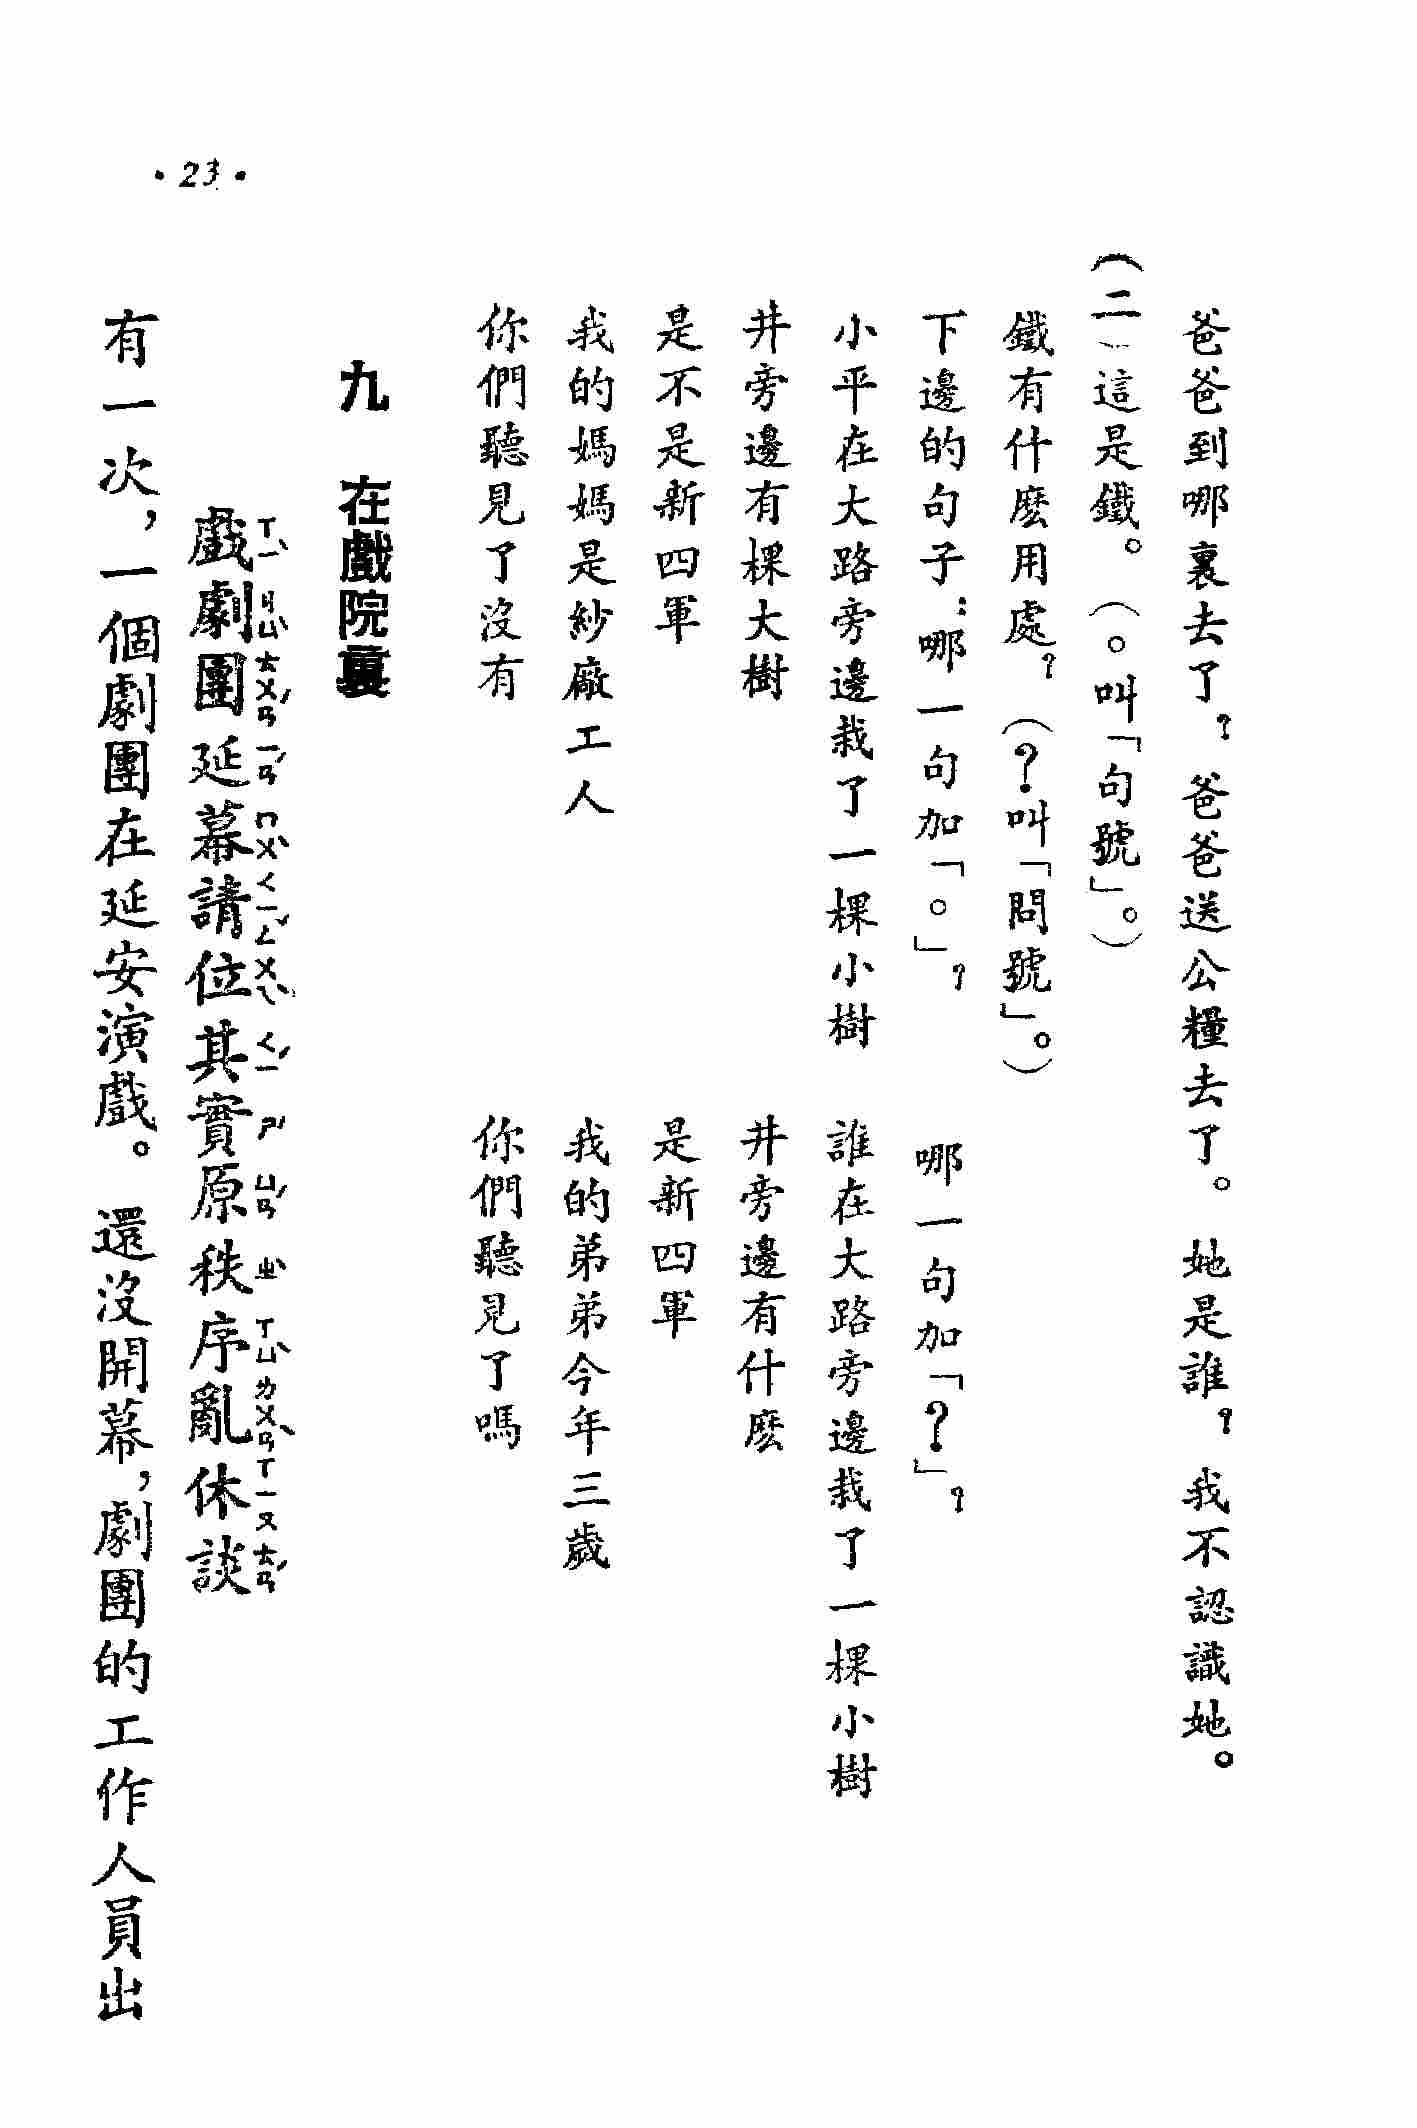 ·23·
爸爸到哪裏去了？爸爸送公糧去了。她是誰？我不認識她。
(二)這是鐵。(。叫「句號」。)
鐵有什麽用處？(？叫「問號」。)
下邊的句子：哪一句加「。」？ 哪一句加「？」？
小平在大路旁邊栽了一棵小樹 誰在大路旁邊栽了一棵小樹
井旁邊有棵大樹 井旁邊有什麽
是不是新四軍 是新四軍
我的媽媽是紗廠工人 我的弟弟今年三歲
你們聽見了沒有 你們聽見了嗎
九 在戲院裏
戲ㄒㄧˋ劇ㄐㄩˋ團ㄊㄨㄢˊ延ㄧㄢˊ幕ㄇㄨˋ請ㄑㄧㄥˇ位ㄨㄟˋ其ㄑㄧˊ實ㄕˊ原ㄩㄢˊ秩ㄓˋ序ㄒㄩˋ亂ㄌㄨㄢˋ休ㄒㄧㄡ談ㄊㄢˊ
有一次，一個劇團在延安演戲。還沒開幕，劇團的工作人員出